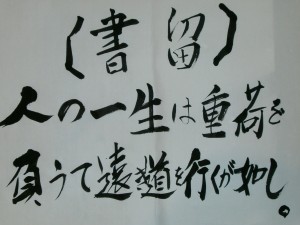 （書留）
人の一生は重荷を
負うて遠き道を行くが如し。